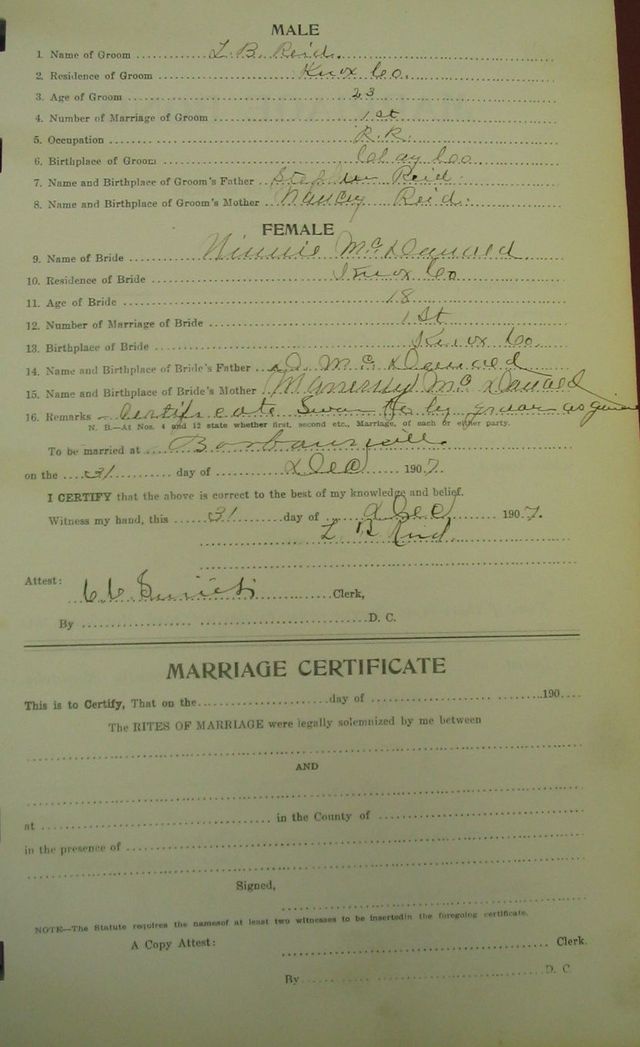 MALE
1. Name of Groom L. B. Reid.
2. Residence of Groom Knox Co.
3. Age of Groom 23
4. Number of Marriage of Groom 1st
5. Occupation R.R.
6. Birthplace of Groom Clay Co
7. Name and Birthplace of Groom's Father Stephen Reid.
8. Name and Birthplace of Groom's Mother Nancy Reid.
FEMALE
9. Name of Bride McDanald
10. Residence of Bride Knox Co
11. Age of Bride 18
12. Number of Marriage of Bride 1st
13. Birthplace of Bride Knox Co.
14. Name and Birthplace of Bride's Father Mc Danald
15. Name and Birthplace of Bride's Mother Mc Danald
16. Remarks Certificate by
N. B.—At Nos. 4 and 12 state whether first, second etc., Marriage, of each or either party.
To be married at Barbourville
on the 31 day of Dec 1907.
I CERTIFY that the above is correct to the best of my knowledge and belief.
Witness my hand, this 31 day of Dec 1907.
L B Reid
Attest: Clerk,
By D. C.
MARRIAGE CERTIFICATE
This is to Certify, That on the day of 190
The RITES OF MARRIAGE were legally solemnized by me between
AND
at in the County of
in the presence of
Signed,
NOTE—The Statute requires the namesof at least two witnesses to be insertedin the foregoing certificate.
A Copy Attest: Clerk.
By D. C.